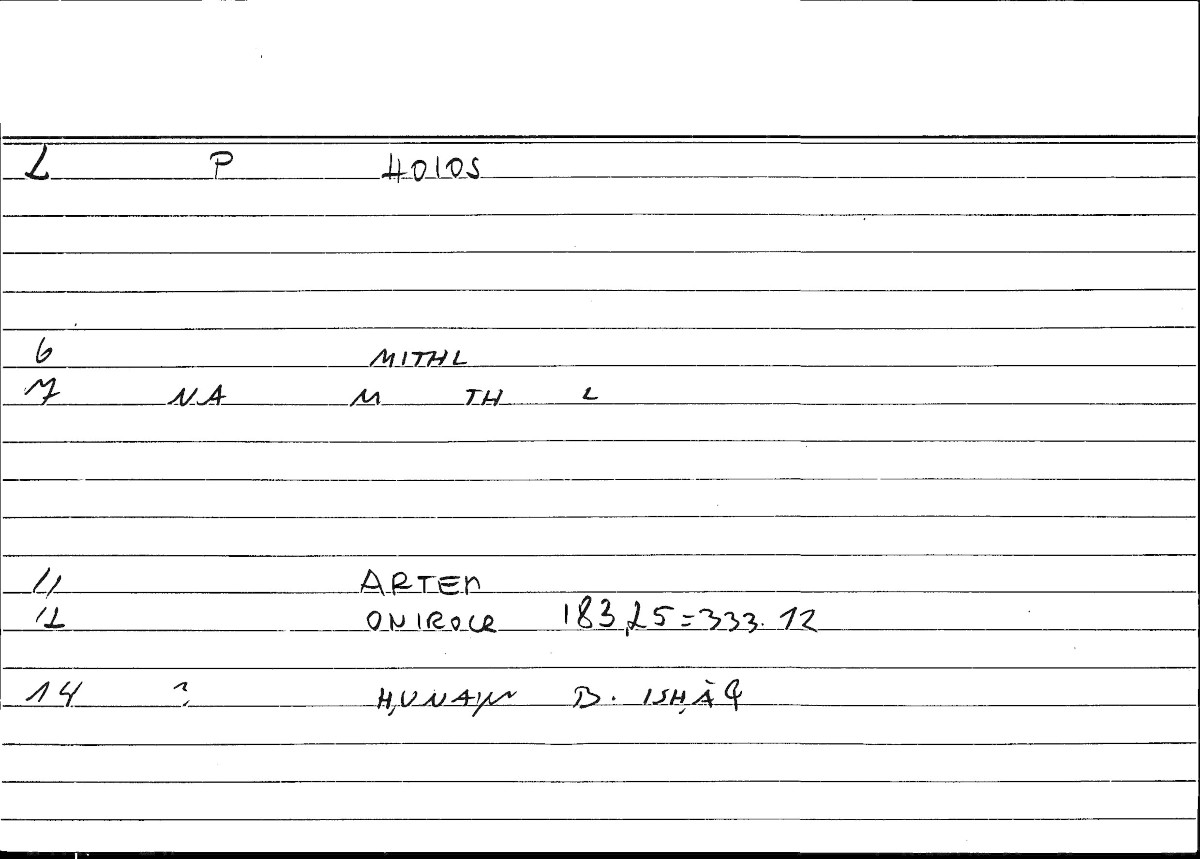 2 P HOIOS
6 MITHL
7 NA M TH L
11 ARTEM
12 ONIROCR 183,25=333.12
14 ? ḤUNAYN B. ISḤĀQ